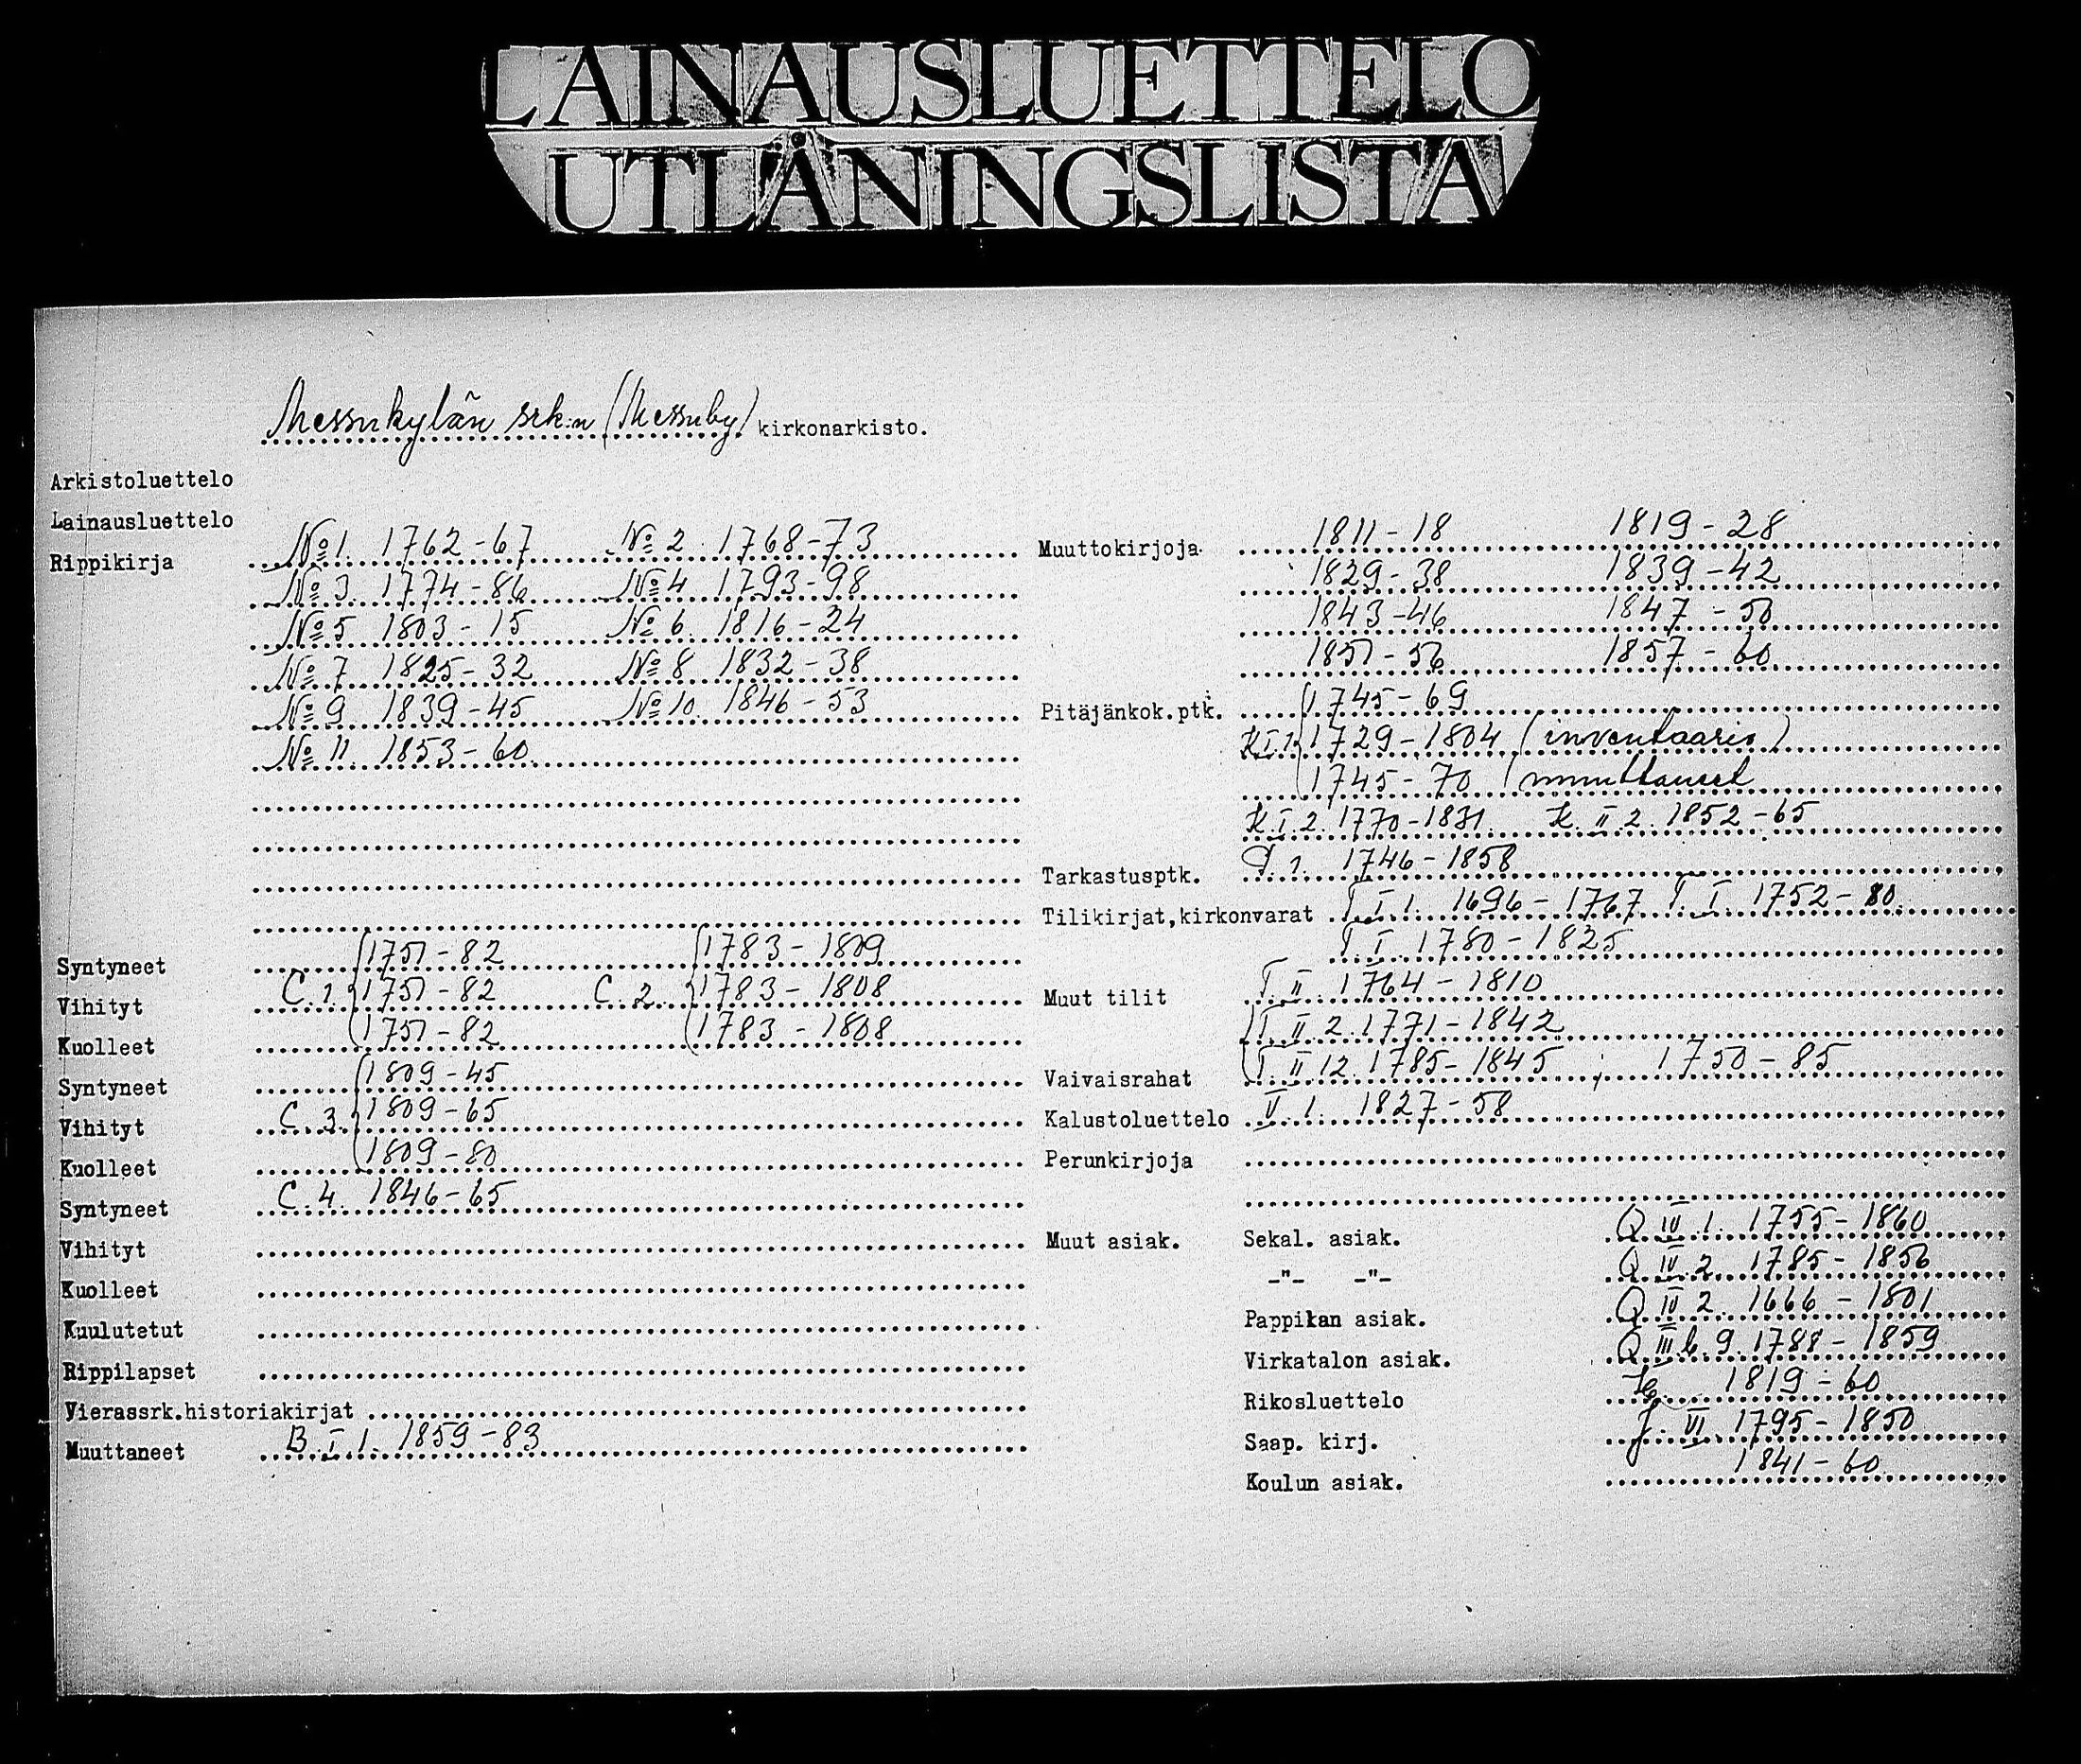 LAINAUSLUETTELO
UTLÅNINGSLISTA
Messukylän srk:n (Messuby) kirkonarkisto.
Arkistoluettelo
Lainausluettelo
Rippikirja No 1. 1762-67 No 2. 1768-73
No 3. 1774-86 No 4 1793-98
No 5 1803-15 No 6. 1816-24
No 7 1825-32 No 8 1832-38
No 9 1839-45 No 10. 1846-53
No 11. 1853-60
Syntyneet 1751-82 1783-1809
Vihityt C.1. 1751-82 C.2. 1783-1808
Kuolleet 1751-82 1783-1808
Syntyneet 1809-45
Vihityt C.3. 1809-65
Kuolleet 1809-80
Syntyneet C.4. 1846-65
Vihityt
Kuolleet
Kuulutetut
Rippilapset
Vierassrk.historiakirjat
Muuttaneet B.I.1. 1859-83
Muuttokirjoja 1811-18 1819-28
1829-38 1839-42
1843-46 1847-50
1851-56 1857-60
Pitäjänkok.ptk. 1745-69
K.I.1. 1729-1804 (inventaario)
1745-70 (muuttaneet
K.I.2. 1770-1831. K.II.2. 1852-65
Tarkastusptk. 1. 1746-1858
Tilikirjat,kirkonvarat T.I.1. 1696-1767 T.I. 1752-80
T.I. 1780-1825
Muut tilit T.II. 1764-1810
T.II.2. 1771-1842
Vaivaisrahat T.II.12. 1785-1845 ; 1750-85
Kalustoluettelo V.1. 1827-58
Perunkirjoja
Muut asiak. Sekal. asiak. Q IV.1. 1755-1860
-"- -"- Q IV.2. 1785-1856
Pappilan asiak. Q IV 2. 1666-1801
Virkatalon asiak. Q III b.9. 1788-1859
Rikosluettelo 1819-60
Saap. kirj. J.VI. 1795-1850
Koulun asiak. 1841-60